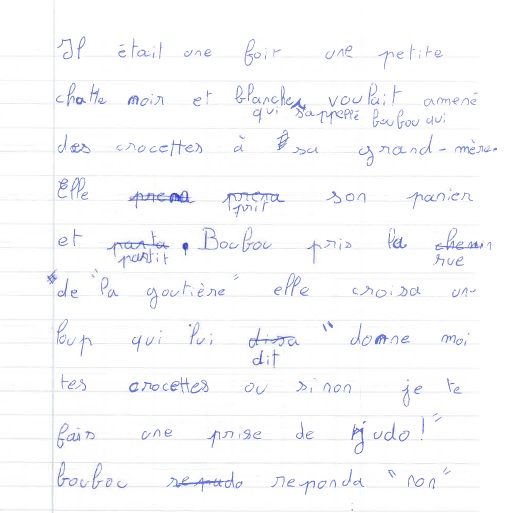 Il était une foir une petite
chatte noir et blanches voulait amené
qui s'appellé boubou qui
des crocettes à sa grand-mère.
Elle prena prena son panier
prit
et parta. Boubou pris la chemin
partit rue
de "la goutière" elle croisa un
loup qui lui disa "donne moi
dit
tes crocettes ou sinon je te
fais une prise de judo!"
boubou repudo reponda "non"